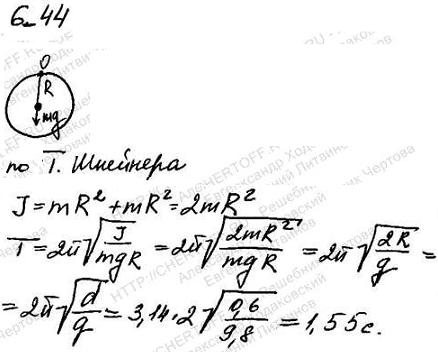 6.44
O
R
mg
по Т. Штейнера
J = mR² + mR² = 2mR²
T = 2π√(J/mgR) = 2π√(2mR²/mgR) = 2π√(2R/g) =
= 2π√(d/g) = 3,14·2√(0,6/9,8) = 1,55 с.